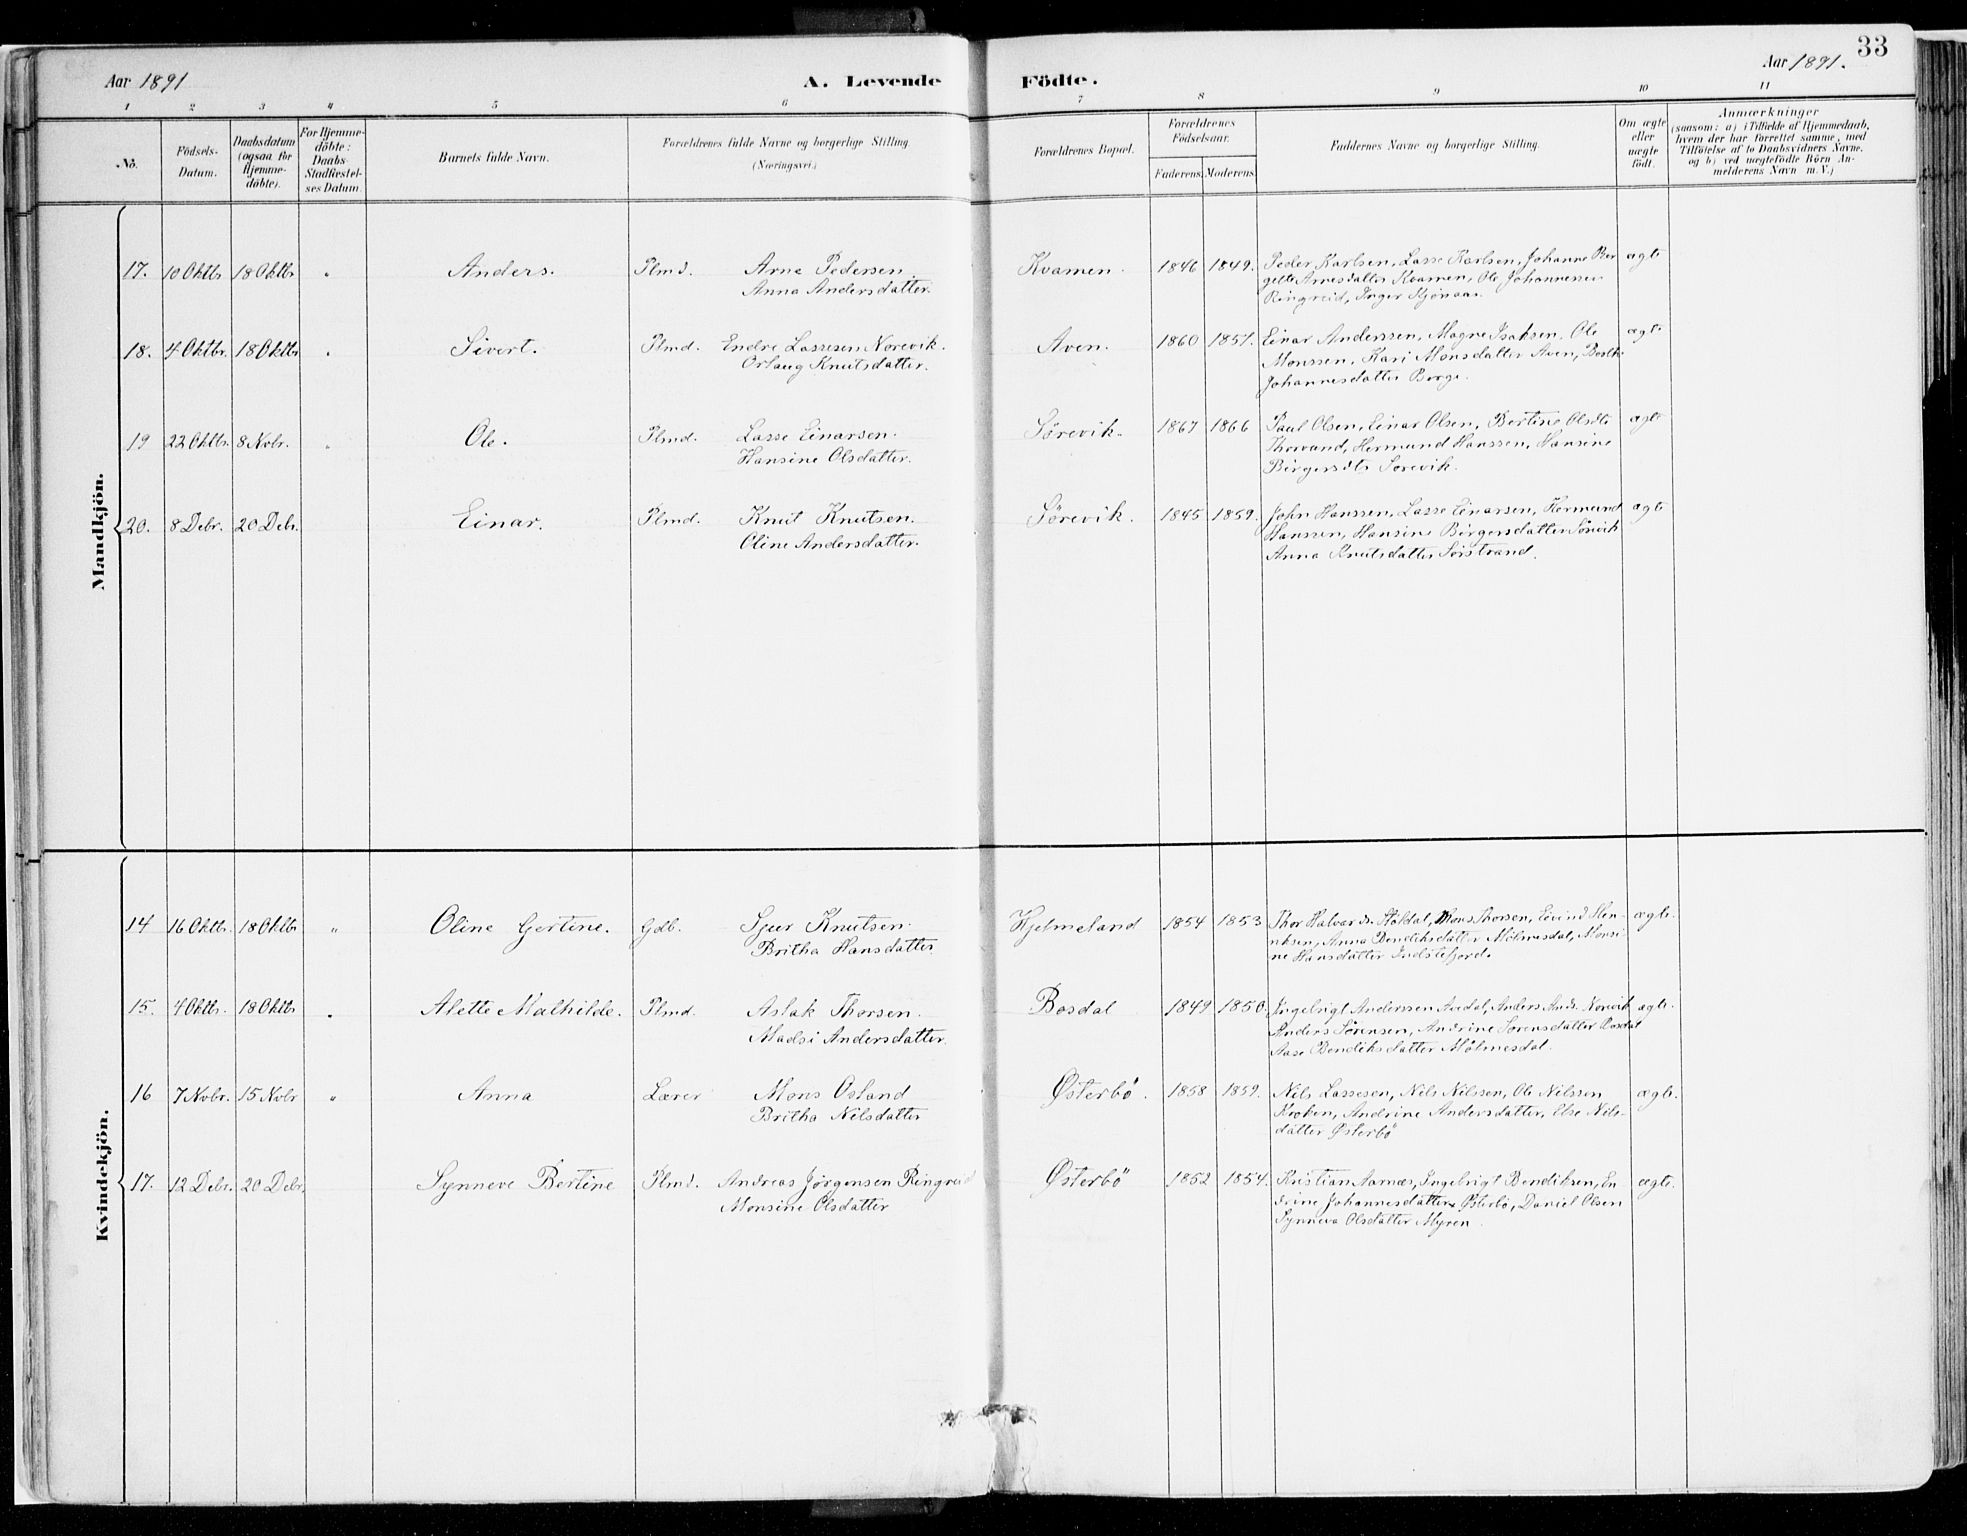 33
Aar 1891
A. Levende
Födte.
Aar 1891.
1 2 3 4 5 6 7 8 9 10 11
No.
Födsels-
Datum.
Daabsdatum
(ogsaa for
Hjemme-
döbte).
For Hjemme-
döbte:
Daabs-
Stadfæstel-
ses Datum.
Barnets fulde Navn.
Forældrenes fulde Navne og borgerlige Stilling
(Næringsvei.)
Forældrenes Bopæl.
Forældrenes
Födselsaar.
Faderens. Moderens.
Faddernes Navne og borgerlige Stilling.
Om ægte
eller
uægte
født.
Anmærkninger
(saasom: a) i Tilfælde af Hjemmedaab,
hvem der har forrettet samme, med
Tilföielse af to Daabsvidners Navne.
og b) ved uægtefödte Börn An-
melderens Navn m. V.)
Mandkjön.
17. 10 Oktbr 18 Oktbr " Anders. Plmd. Arne Pedersen. Kvamen. 1846 1849. Peder Karlsen, Lasse Karlsen, Johanne Ber ægte
Anna Andersdatter. gette Arnesdatter Kvamen, Ole Johannessen
Ringreid, Inger Kjønaas.
18. 4 Oktbr. 18 Oktbr " Sivert. Plmd. Endre Lassesen Norevik. Aven. 1860 1857. Einar Anderssen, Magne Isaksen, Ole ægte
Orlaug Knutsdatter. Monssen, Kari Monsdatter Aven,
Johannesdatter Berge.
19 22 Oktbr. 8 Nvbr. " Ole. Plmd. Lasse Einarsen. Sörevik. 1867 1866 Paul Olsen, Einar Olsen, Bertine Olsdtr ægte
Hansine Olsdatter. Hermund Hanssen, Hansine
Birgersdtr Sørevik.
20. 8 Debr. 20 Debr. Einar. Plmd. Knut Knutsen. Sörevik. 1845 1859. John Hanssen, Lasse Einarsen, Hermund ægte
Oline Andersdatter. Hanssen, Hansine Birgersdatter Sörevik
Anna Knutsdatter Sørstrand.
Kvindekjön.
14 16 Oktbr. 18 Oktbr " Oline Gertine. Gdb. Sjur Knutsen. Kjelmeland 1854 1853 Thor Halvards. Stöldal, Mons Thorsen, Eivind Hen- ægte.
Britha Hansdatter. riksen, Anna Bendiksdatter Mölmesdal, Monsi-
ne Hansdatter Indstefjord.
15. 4 Oktbr. 18 Oktbr " Alette Mathilde. Plmd. Aslak Thorsen. Bosdal 1849 1850. Ingebrigt Anderssen Aadal, Anders Ands. Norevik ægte.
Madsi Andersdatter. Anders Sörensen, Andrine Sørensdatter Bosdal
Aase Bendiksdatter Mölmesdal.
16 7 Nvbr. 15 Nvbr " Anna Lærer Mons Osland Østerbö. 1858 1859. Nils Lassesen, Nils Nilssen, Ole Nilssen ægte.
Britha Nilsdatter Kroken, Andrine Andersdatter, Else Nils-
datter Østerbö
17. 12 Debr. 20 Debr. Synneve Bertine Plmd. Andreas Jørgensen Ringreid Østerbö 1852 1854. Kristian Aarnæs, Ingebrigt Bendiksen, En ægte.
Monsine Olsdatter drine Johannesdatter Østerbö, Daniel Olsen
Synneva Olsdatter Myren.